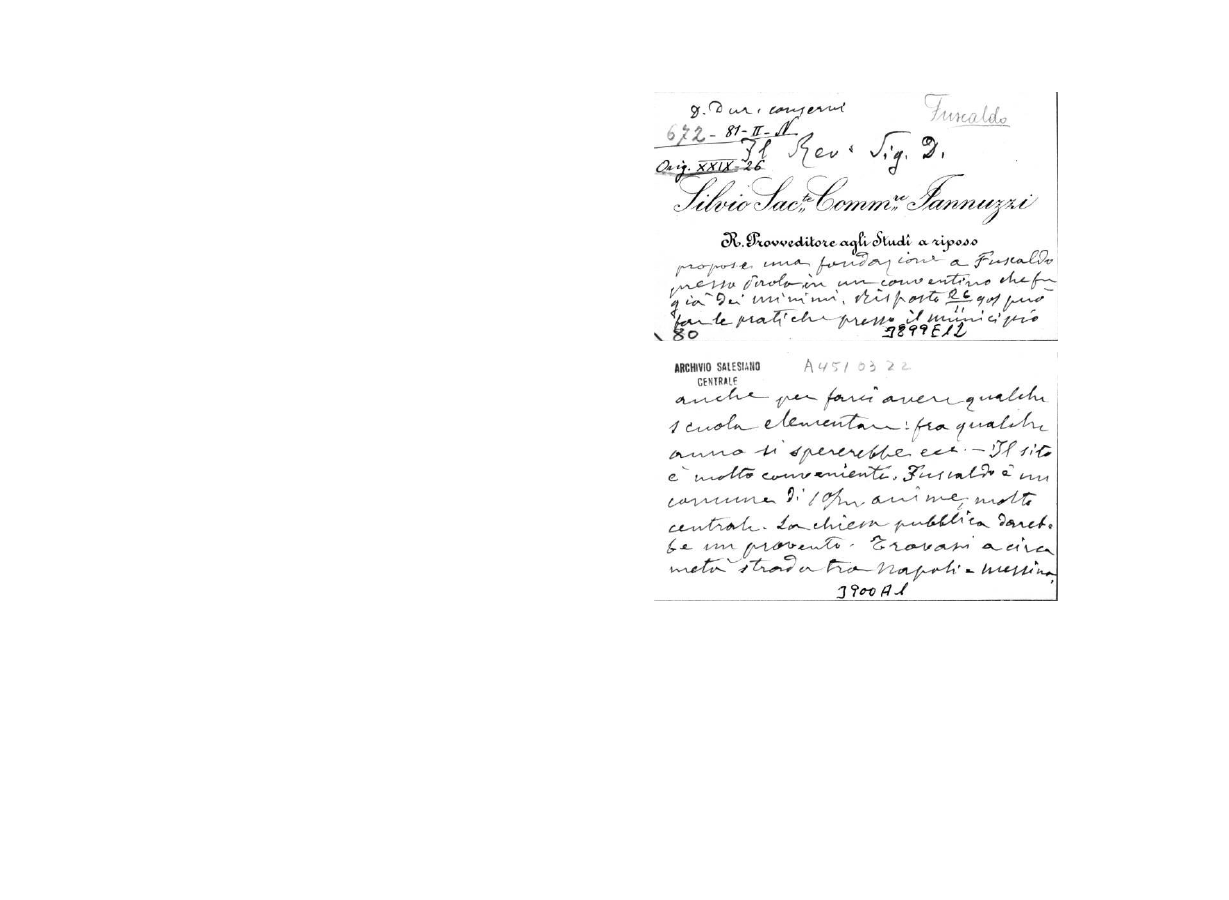 D. Dur. conservi
Fuscaldo
672 - 81 - II - N
Il Rev. Sig. D.
Orig. XXIX - 26
Silvio Sac.te Comm.re Iannuzzi
R. Provveditore agli Studî a riposo
propose una fondazione a Fuscaldo
presso in un conventino che fu
già dei minimi. Risposto 26 può
far le pratiche presso il municipio
80
3899E12
ARCHIVIO SALESIANO
CENTRALE
A4510322
anche per farci avere qualche
scuola elementare: fra qualche
anno si spererebbe ecc. - Il sito
è molto conveniente. Fuscaldo è un
comune di anime, molto
centrale. La chiesa pubblica dareb-
be un provento. Trovasi a circa
metà strada tra Napoli e Messina.
3900A1